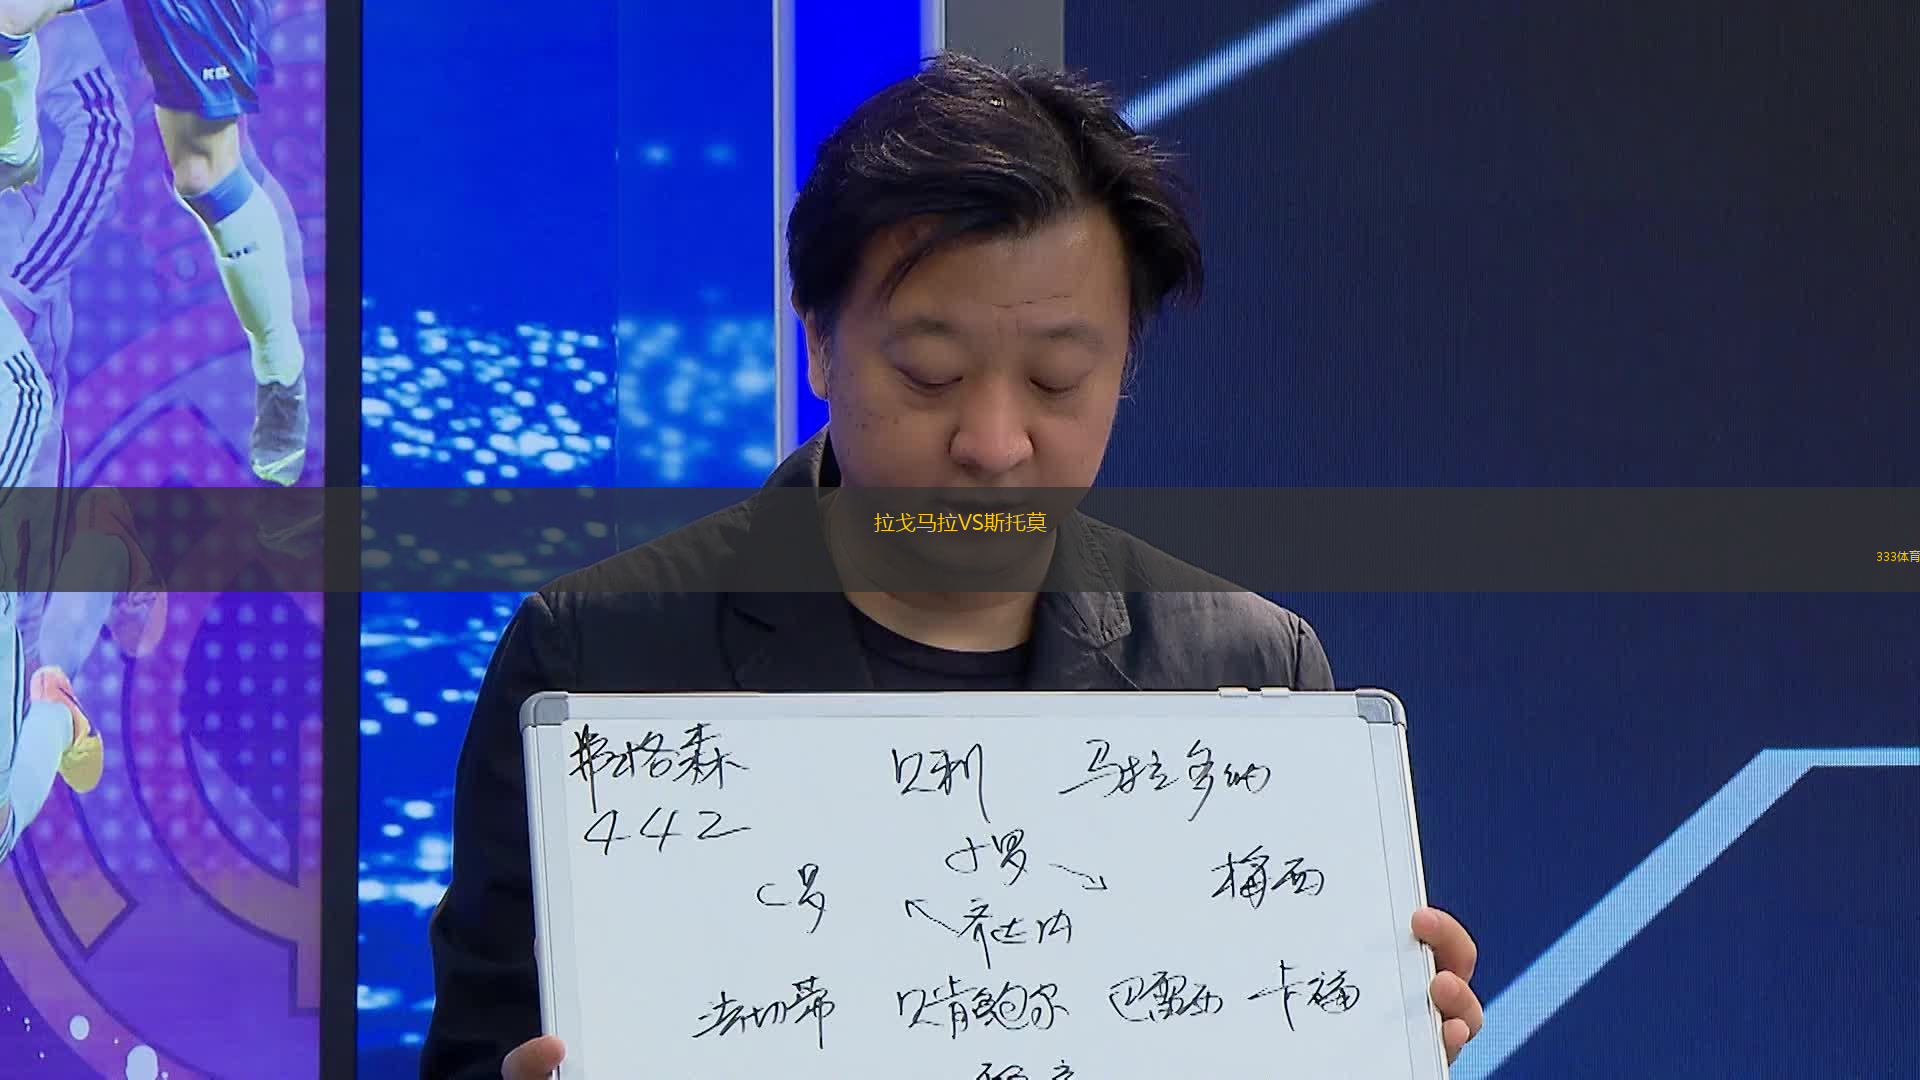 拉戈马拉VS斯托莫
333体育
弗格森
442
贝利 马拉多纳
小罗
C罗 梅西
齐达内
法切蒂 贝肯鲍尔 巴雷西 卡福